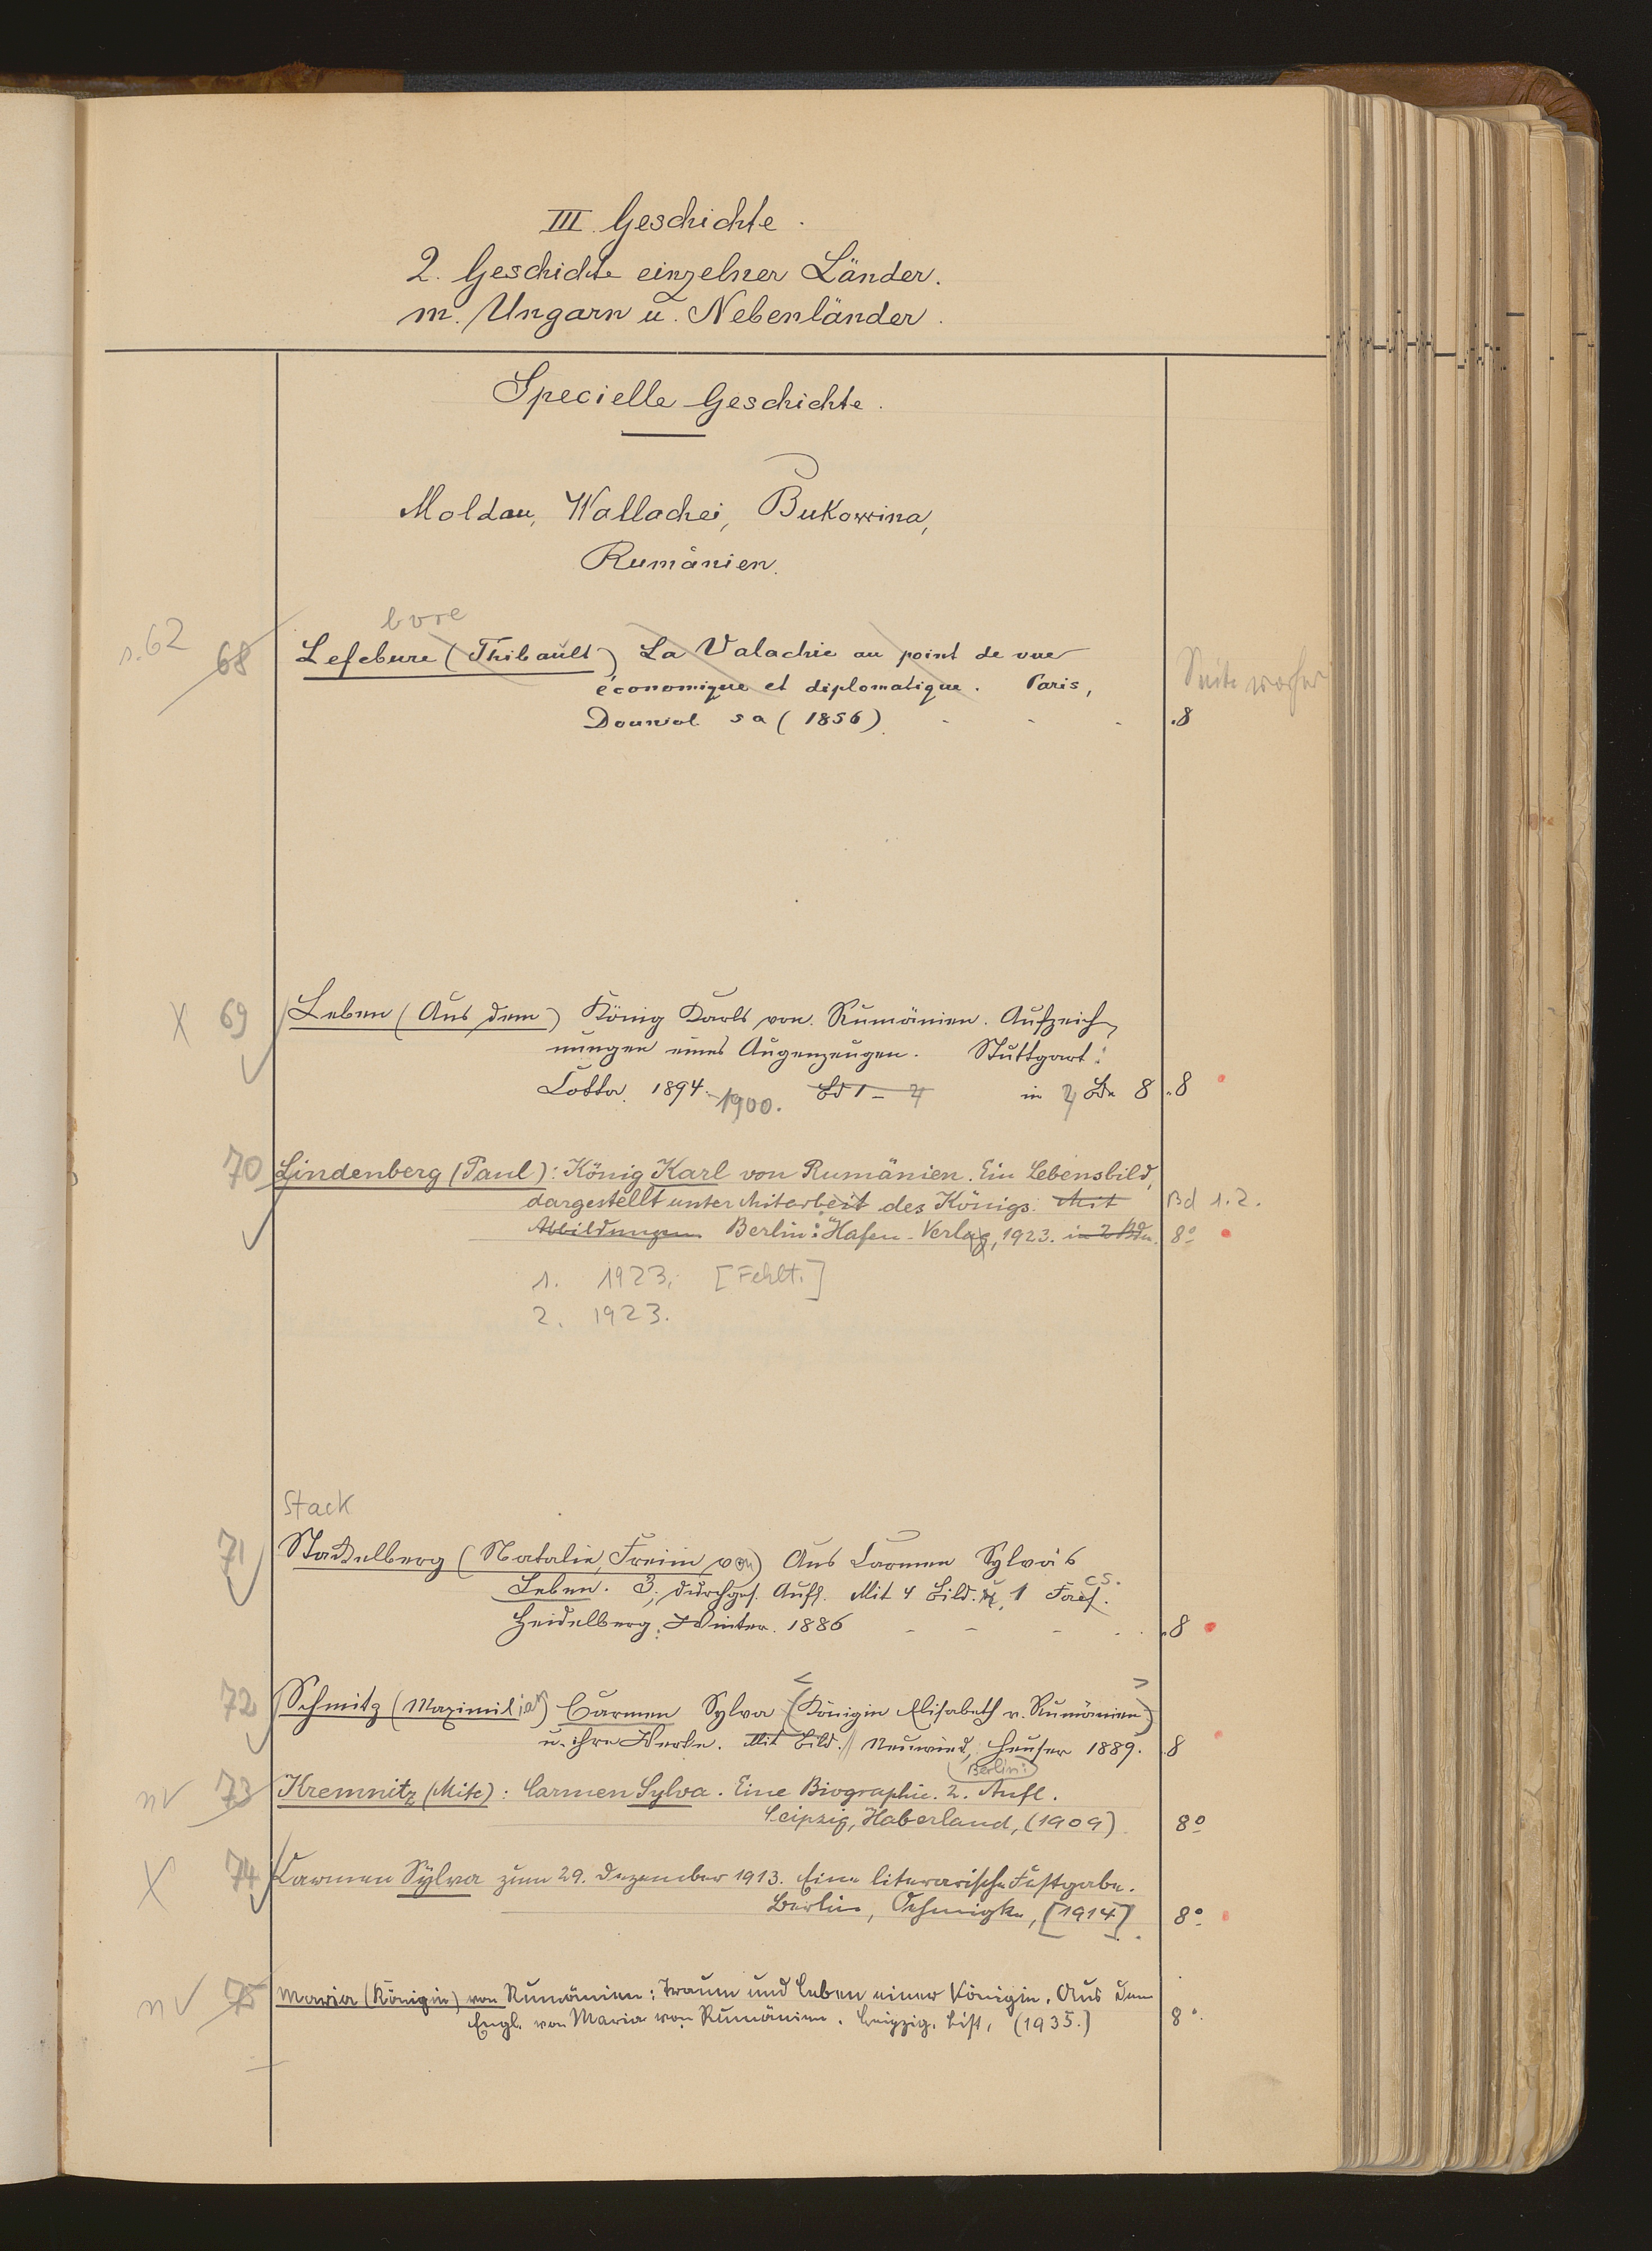 III. Geschichte.
2. Geschichte einzelner Länder.
m. Ungarn u. Nebenländer.
Specielle Geschichte.
Moldau, Wallachei, Bukowina,
Rumänien.
bvre
s. 62 68 Lefebure (Thibault) La Valachie au point de vue
économique et diplomatique. Paris, Seite vorher
Douniol s a (1856). 8
X 69 Leben (Aus dem) König Karls von Rumänien. Aufzeich
nungen eines Augenzeugen. Stuttgart:
Cotta. 1894.-1900. Bd 1-4 in 4 Bdn 8 8
70 Lindenberg (Paul): König Karl von Rumänien. Ein Lebensbild,
dargestellt unter Mitarbeit des Königs. Mit Bd 1.2.
Abbildungen Berlin: Hafen-Verlag, 1923. in 2 Bdn. 8º
1. 1923. [Fehlt.]
2. 1923.
Stack
71 Stackelberg (Natalie, Freiin von) Aus Carmen Sylva's
Leben. 3. durchges. Aufl. Mit 4 Bild. u. 1 Facs.
Heidelberg: Winter. 1886 8
72 Schmitz (Maximilian) Carmen Sylva <(Königin Elisabeth v. Rumänien)>
u. ihre Werke. Mit Bild. Neuwied, Heuser 1889. 8
Berlin:
nv 73 Kremnitz (Mite): Carmen Sylva. Eine Biographie. 2. Aufl.
Leipzig, Haberland, (1909) 8º
X 74 Carmen Sylva zum 29. Dezember 1913. Eine literarische Festgabe.
Berlin, Oehmigke, [1914]. 8º
nv 75 Maria (Königin) von Rumänien: Traum und Leben einer Königin. Aus dem
Engl. von Maria von Rumänien. Leipzig, List, (1935.) 8º